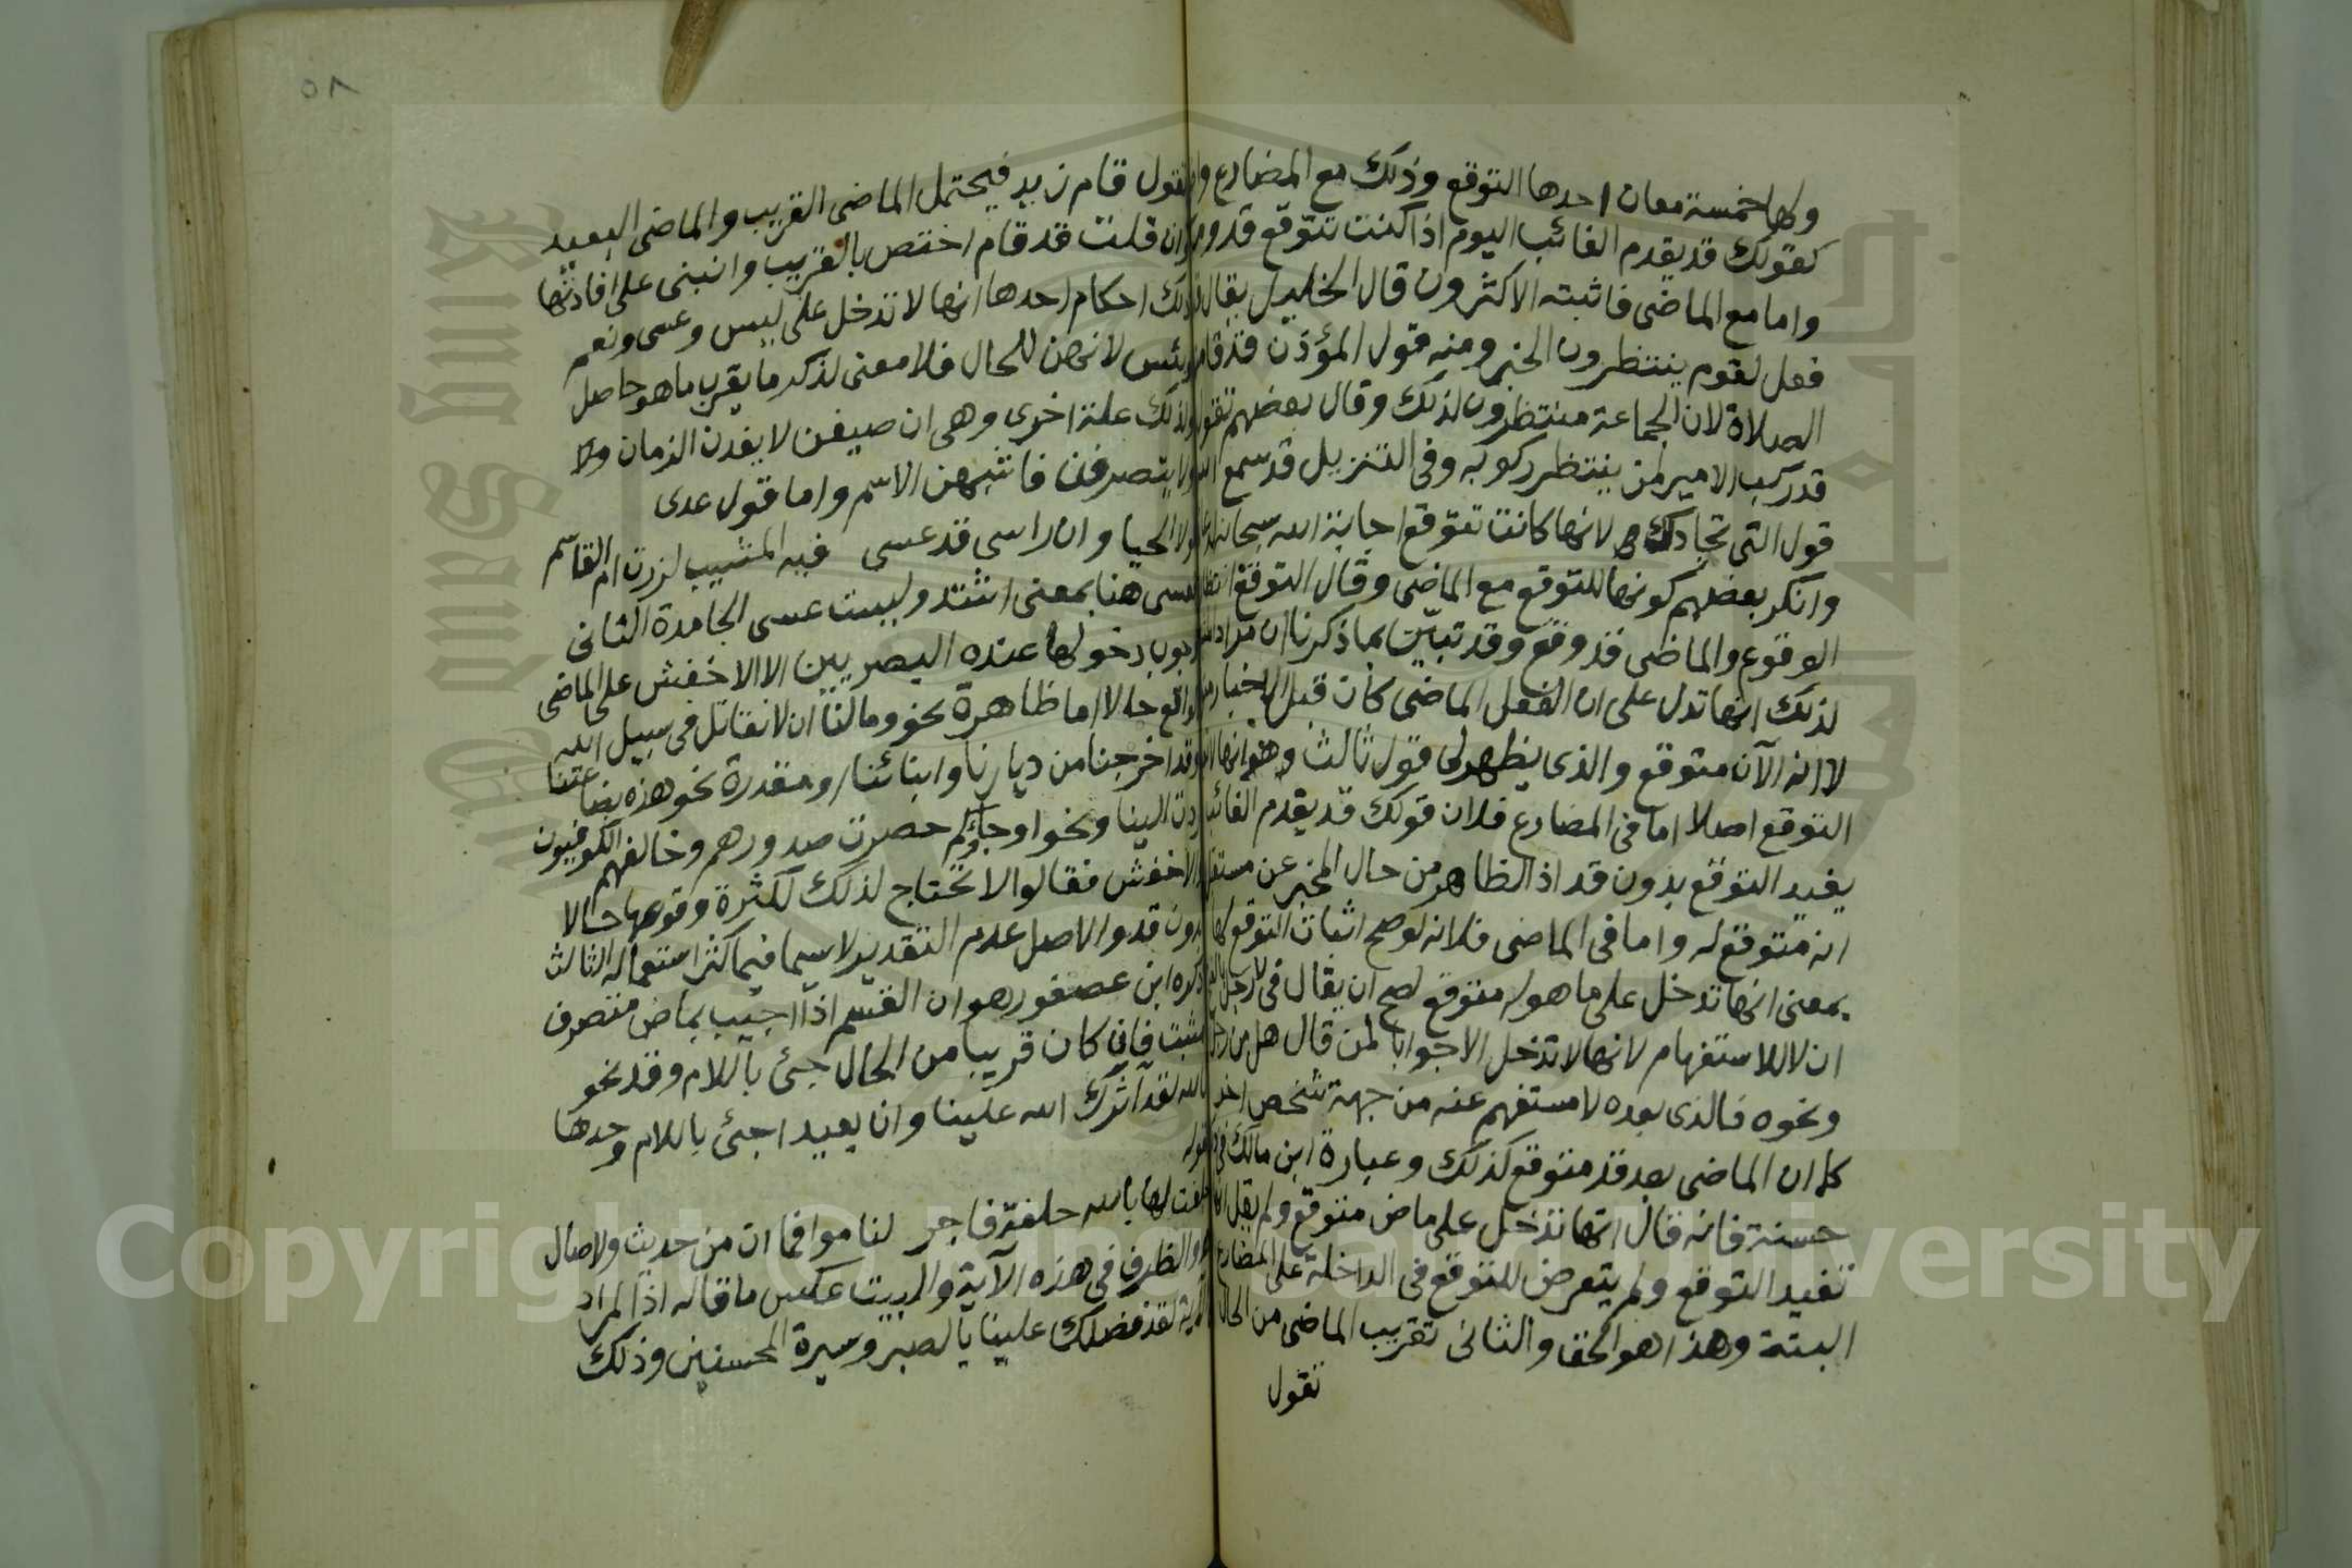 ولها خمسة معان احدها التوقع وذلك مع المضارع
كقولك قد يقدم الغائب اليوم اذا كنت تتوقع
واما مع الماضى فاثبته الاكثرون قال الخليل يقال
فعل لقوم ينتظرون الخبر ومنه قول المؤذن
الصلاة لان الجماعة منتظرون لذلك وقال بعضهم
قد ركب الامير لمن ينتظر ركوبه وفى التنزيل قد سمع
قول التى تجادلك لانها كانت تتوقع اجابة الله
وانكر بعضهم كونها للتوقع مع الماضى وقال التوقع
الوقوع والماضى قد وقع وقد تبين بما ذكرنا ان
لذلك انها تدل على ان الفعل الماضى كان قبل الاخبار
لا انه الآن متوقع والذى يظهر لى قول ثالث وهو انها
التوقع اصلا اما فى المضارع فلان قولك قد يقدم
يفيد التوقع بدون قد اذ الظاهر من حال المخبر عن
انه متوقع له واما فى الماضى فلانه لو صح اثبات التوقع لها
بمعنى انها تدخل على ما هو متوقع لصح ان يقال فى لا رجل
ان لا للاستفهام لانها لا تدخل الا جوابا لمن قال هل من
ونحوه فالذى بعده لا مستفهم عنه من جهة شخص
كما ان الماضى بعد قد متوقع كذلك وعبارة ابن مالك
حسنة فانه قال انها تدخل على ماض متوقع ولم يقل
تفيد التوقع ولم يتعرض للتوقع فى الداخلة على المضارع
البتة وهذا هو الحق والثانى تقريب الماضى من
تقول
٥٨
تقول قام زيد فيحتمل الماضى القريب والماضى البعيد
وان قلت قد قام اختص بالقريب وانبنى على افادتها
ذلك احكام احدها انها لا تدخل على ليس وعسى ونعم
وبئس لانهن للحال فلا معنى لذكر ما يقرب ما هو حاصل
ولذلك علة اخرى وهى ان صيغهن لا يفدن الزمان ولا
ولا يتصرفن فاشبهن الاسم واما قول عدى
لولا الحيا وان راسى قد عسى فيه المشيب لزرت ام القاسم
فعسى هنا بمعنى اشتد وليست عسى الجامدة الثانى
وجوب دخولها عند البصريين الا الاخفش على الماضى
الواقع حالا اما ظاهرة نحو وما لنا ان لا نقاتل فى سبيل الله
وقد اخرجنا من ديارنا وابنائنا او مقدرة نحو هذه بضاعتنا
ردت الينا ونحو او جاؤكم حصرت صدورهم وخالفهم الكوفيون
والاخفش فقالوا لا تحتاج لذلك لكثرة وقوعها حالا
بدون قد والاصل عدم التقدير لا سيما فيما كثر استعماله الثالث
ذكره ابن عصفور وهو ان القسم اذا اجيب بماض متصرف
مثبت فان كان قريبا من الحال جئ باللام وقد نحو
تالله لقد آثرك الله علينا وان بعيدا جئ باللام وحدها
كقوله
حلفت لها بالله حلفة فاجر لناموا فما ان من حديث ولا صال
والظرف فى هذه الآية والبيت عكس ما قاله اذ المراد
لقد فضلك علينا بالصبر وسيرة المحسنين وذلك
Copyright © King Saud University